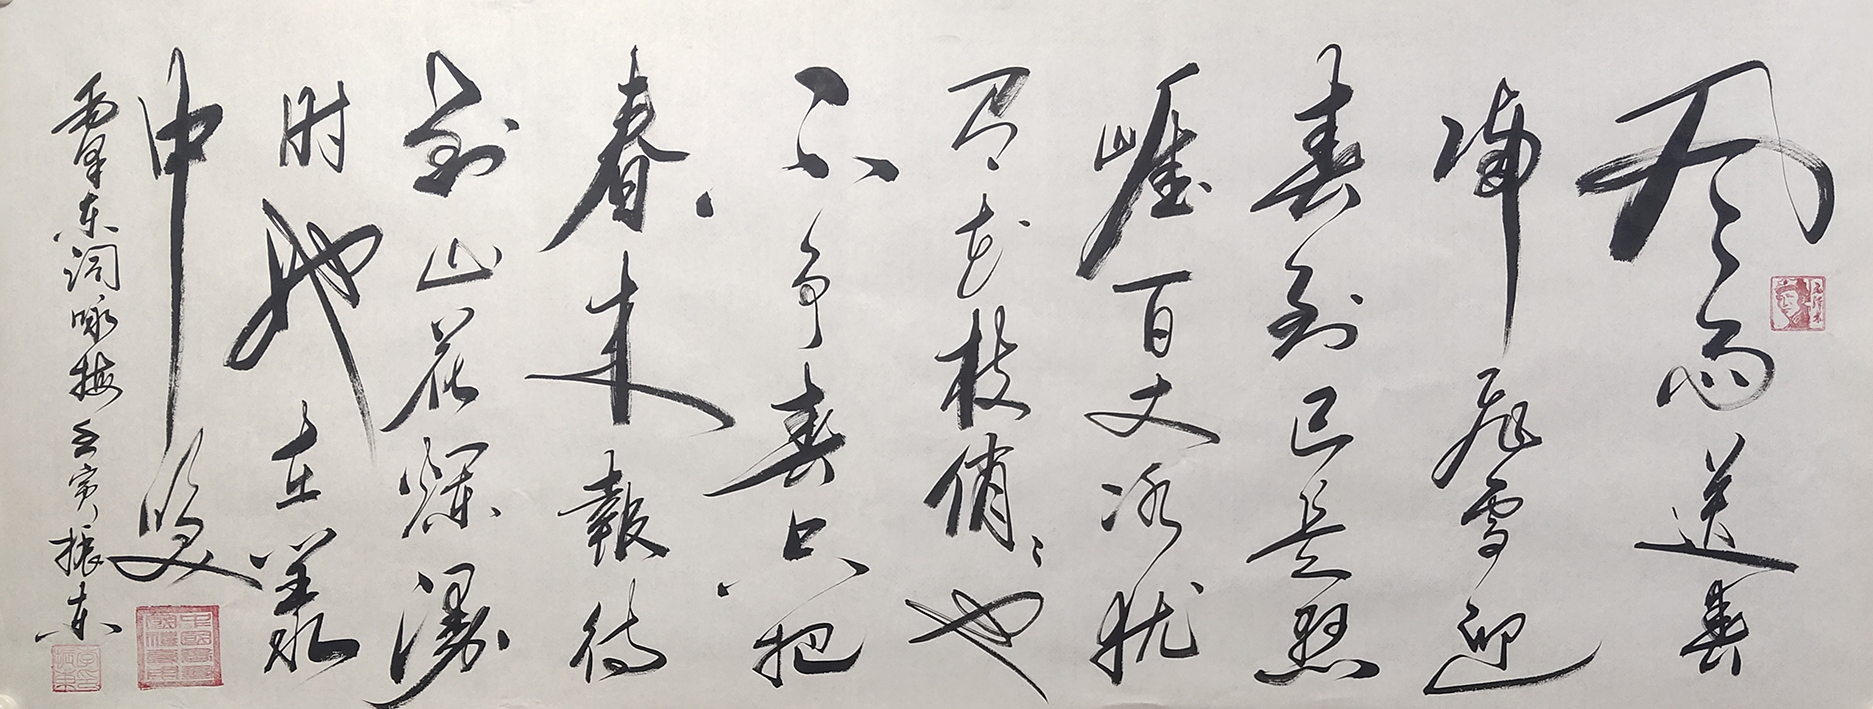 风雨送春
帰飛雪迎
春到已是悬
崖百丈冰犹
有花枝俏〻也
不争春只把
春来報待
到山花爛漫
时她在叢
中笑
毛泽东词咏梅 壬寅 振东